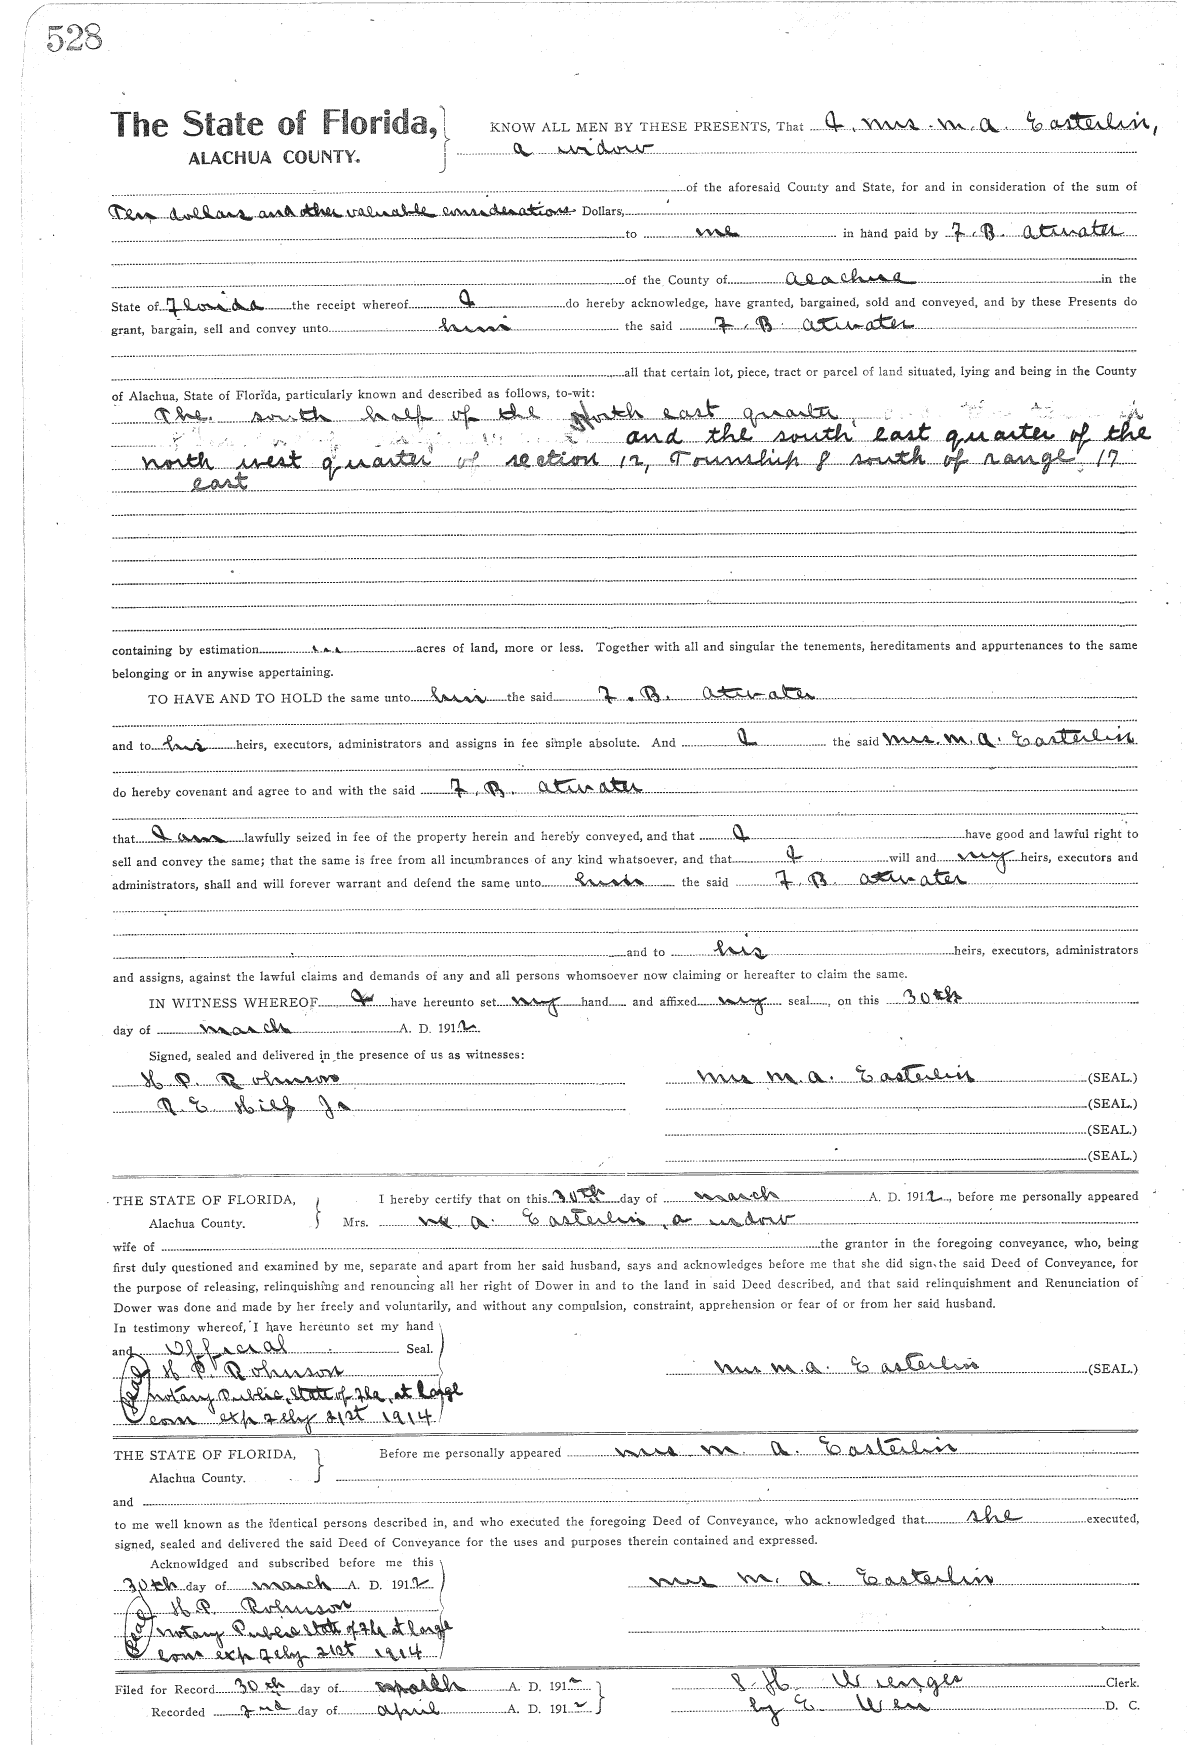 528
The State of Florida, KNOW ALL MEN BY THESE PRESENTS, That I, Mrs. M. A. Easterlin,
ALACHUA COUNTY. a widow
of the aforesaid County and State, for and in consideration of the sum of
Ten dollars and other valuable considerations Dollars,
to me in hand paid by F. B. Atwater
of the County of Alachua in the
State of Florida the receipt whereof I do hereby acknowledge, have granted, bargained, sold and conveyed, and by these Presents do
grant, bargain, sell and convey unto him the said F. B. Atwater
all that certain lot, piece, tract or parcel of land situated, lying and being in the County
of Alachua, State of Florida, particularly known and described as follows, to-wit:
The south half of the North east quarter
and the south east quarter of the
north west quarter of section 12, Township 8 south of range 17
east
containing by estimation acres of land, more or less. Together with all and singular the tenements, hereditaments and appurtenances to the same
belonging or in anywise appertaining.
TO HAVE AND TO HOLD the same unto him the said F. B. Atwater
and to his heirs, executors, administrators and assigns in fee simple absolute. And I the said Mrs. M. A. Easterlin
do hereby covenant and agree to and with the said F. B. Atwater
that I am lawfully seized in fee of the property herein and hereby conveyed, and that I have good and lawful right to
sell and convey the same; that the same is free from all incumbrances of any kind whatsoever, and that I will and my heirs, executors and
administrators, shall and will forever warrant and defend the same unto him the said F. B. Atwater
and to his heirs, executors, administrators
and assigns, against the lawful claims and demands of any and all persons whomsoever now claiming or hereafter to claim the same.
IN WITNESS WHEREOF I have hereunto set my hand and affixed my seal, on this 30th
day of March A. D. 1912.
Signed, sealed and delivered in the presence of us as witnesses:
H P. Robinson Mrs M. A. Easterlin (SEAL.)
R. E. Hill Jr (SEAL.)
(SEAL.)
(SEAL.)
THE STATE OF FLORIDA, I hereby certify that on this 30th day of March A. D. 1912, before me personally appeared
Alachua County. Mrs. M A. Easterlin, a widow
wife of the grantor in the foregoing conveyance, who, being
first duly questioned and examined by me, separate and apart from her said husband, says and acknowledges before me that she did sign the said Deed of Conveyance, for
the purpose of releasing, relinquishing and renouncing all her right of Dower in and to the land in said Deed described, and that said relinquishment and Renunciation of
Dower was done and made by her freely and voluntarily, and without any compulsion, constraint, apprehension or fear of or from her said husband.
In testimony whereof, I have hereunto set my hand
and Official Seal.
H P. Robinson Mrs M. A. Easterlin (SEAL.)
Seal Notary Public, State of Fla, at large
com exp Feby 21st 1914
THE STATE OF FLORIDA, Before me personally appeared Mrs M. A. Easterlin
Alachua County.
and
to me well known as the identical persons described in, and who executed the foregoing Deed of Conveyance, who acknowledged that she executed,
signed, sealed and delivered the said Deed of Conveyance for the uses and purposes therein contained and expressed.
Acknowldged and subscribed before me this
30th day of March A. D. 1912 Mrs M. A. Easterlin
H. P. Robinson
Seal Notary Public State of Fla at large
Com exp Feby 21st 1914
Filed for Record 30th day of March A. D. 1912 S. H. Wienges Clerk.
Recorded 2nd day of April A. D. 1912 by E. D. C.